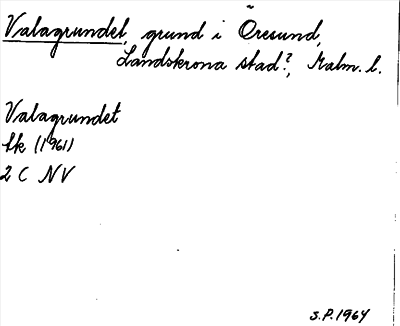 Valagrundet, grund i Öresund,
Landskrona stad?, Malm. l.
Valagrundet
Ek (1961)
2 C NV
S.P. 1964